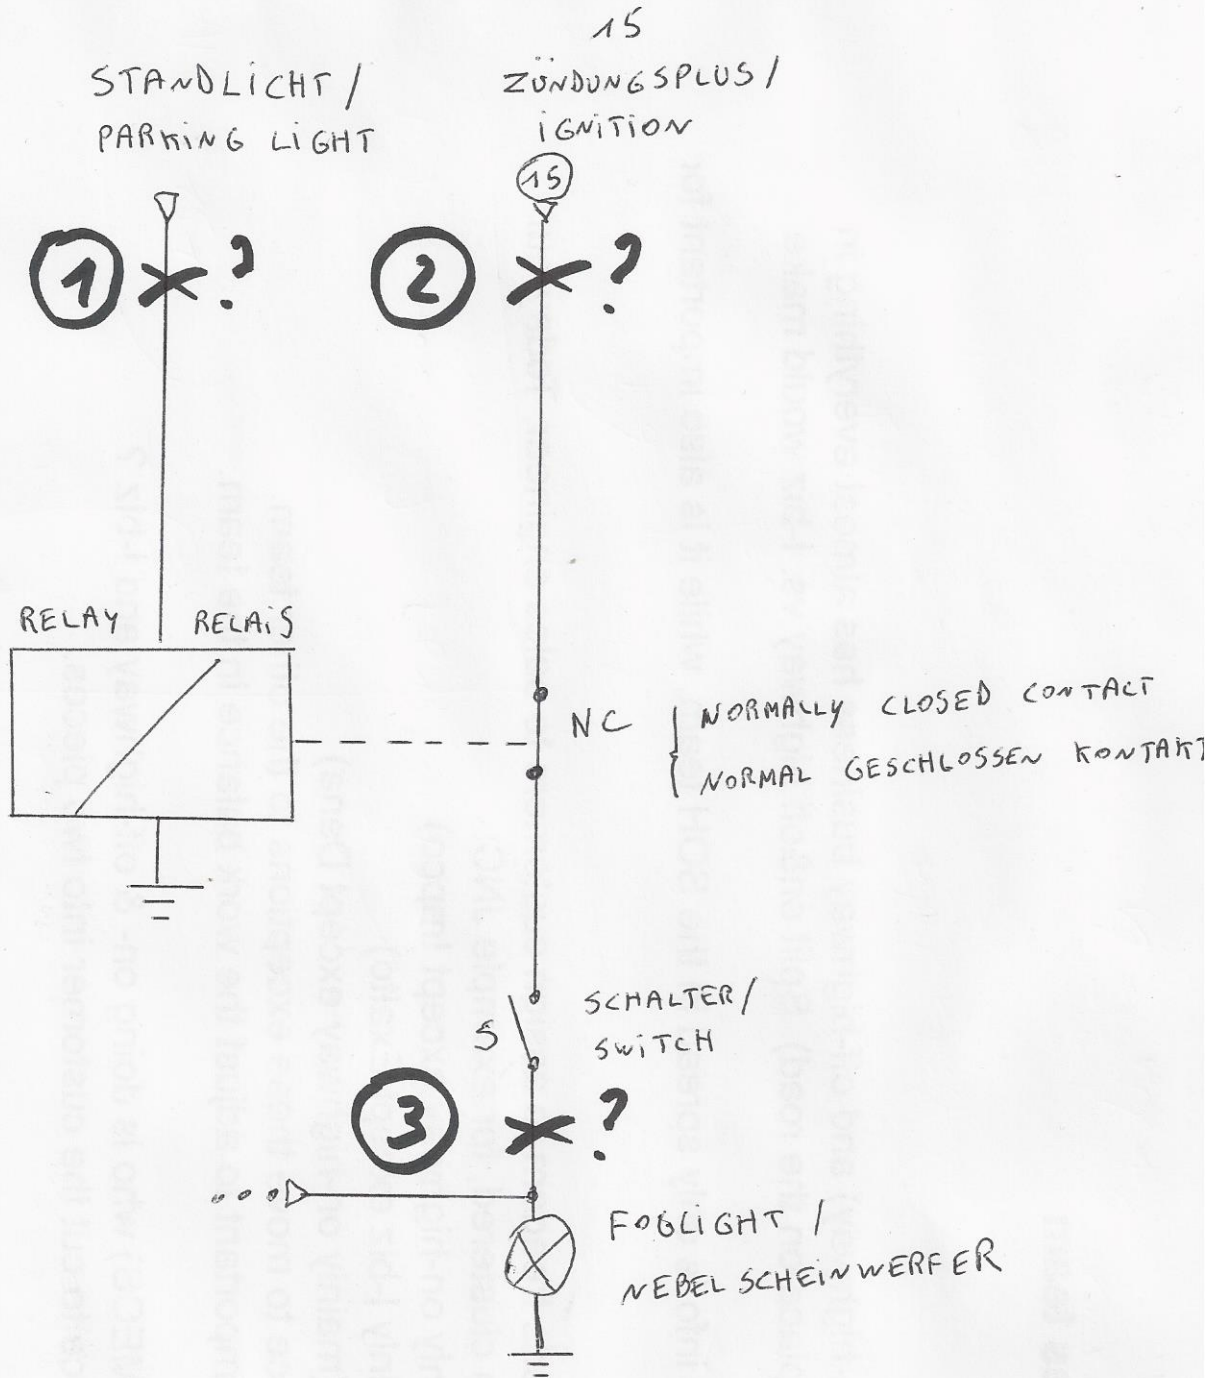 STANDLICHT /
PARKING LIGHT
15
ZÜNDUNGSPLUS /
IGNITION
15
1 ?
2 ?
RELAY RELAIS
NC
NORMALLY CLOSED CONTACT
NORMAL GESCHLOSSEN KONTAKT
S
SCHALTER /
SWITCH
3 ?
FOGLIGHT /
NEBELSCHEINWERFER